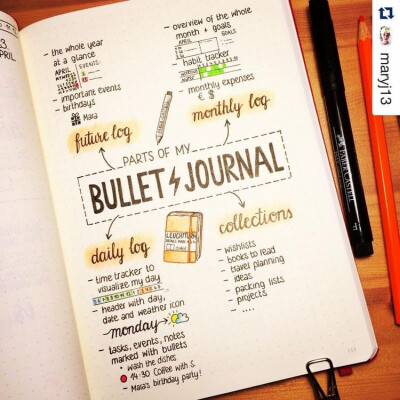 PARTS OF MY
BULLET JOURNAL
future log
- the whole year
at a glance
APRIL
EVENTS:
- important events
- birthdays
Maia
monthly log
- overview of the whole
month + goals
APRIL
GOALS
- habit tracker
- monthly expenses
€ $
daily log
- time tracker to
visualize my day
- header with day,
date and weather icon
monday
- tasks, events, notes
marked with bullets
• wash the dishes
14:30 Coffee with S.
- Maia's birthday party!
LEUCHTTURM
collections
- wishlists
- books to read
- travel planning
- ideas
- packing lists
- projects
- ....
FABER-CASTELL
maryj13